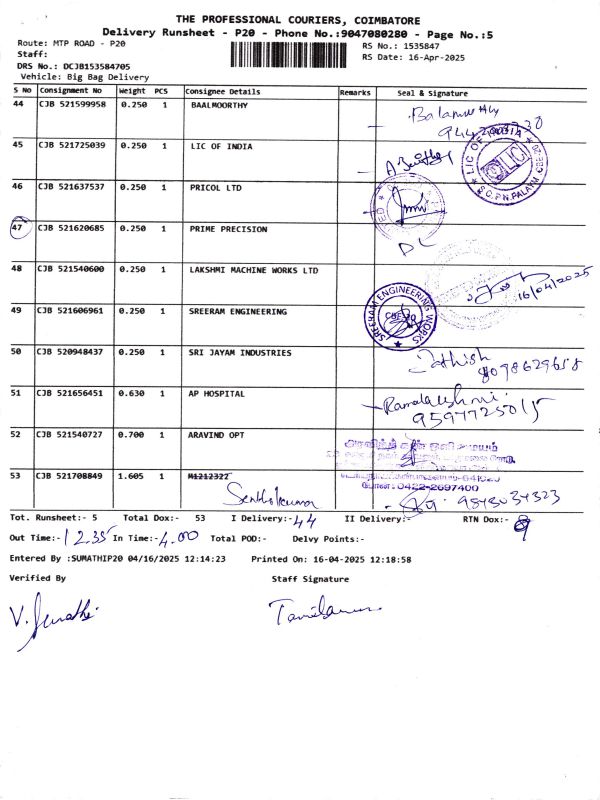 THE PROFESSIONAL COURIERS, COIMBATORE
Delivery Runsheet - P20 - Phone No.:9047080280 - Page No.:5
Route: MTP ROAD - P20
RS No.: 1535847
Staff:
RS Date: 16-Apr-2025
DRS No.: DCJB153584705
Vehicle: Big Bag Delivery
S No Consignment No Weight PCS Consignee Details Remarks Seal & Signature
44 CJB 521599958 0.250 1 BAALMOORTHY
45 CJB 521725039 0.250 1 LIC OF INDIA
LIC OF INDIA
LIC
46 CJB 521637537 0.250 1 PRICOL LTD
47 CJB 521620685 0.250 1 PRIME PRECISION
DL
48 CJB 521540600 0.250 1 LAKSHMI MACHINE WORKS LTD
16/04/2025
49 CJB 521606961 0.250 1 SREERAM ENGINEERING
SREERAM ENGINEERING WORKS
50 CJB 520948437 0.250 1 SRI JAYAM INDUSTRIES
8098629658
51 CJB 521656451 0.630 1 AP HOSPITAL
Ramalakshmi
9597725015
52 CJB 521540727 0.700 1 ARAVIND OPT
அரவிந்த் கண் ஒளி மையம்
53 CJB 521708849 1.605 1 M1212322
போன்: 0422-2697400
Senthilkumar
9843034323
Tot. Runsheet:- 5 Total Dox:- 53 I Delivery:- 44 II Delivery:- RTN Dox:- 9
Out Time:- 12.35 In Time:- 4.00 Total POD:- Delvy Points:-
Entered By :SUMATHIP20 04/16/2025 12:14:23 Printed On: 16-04-2025 12:18:58
Verified By Staff Signature